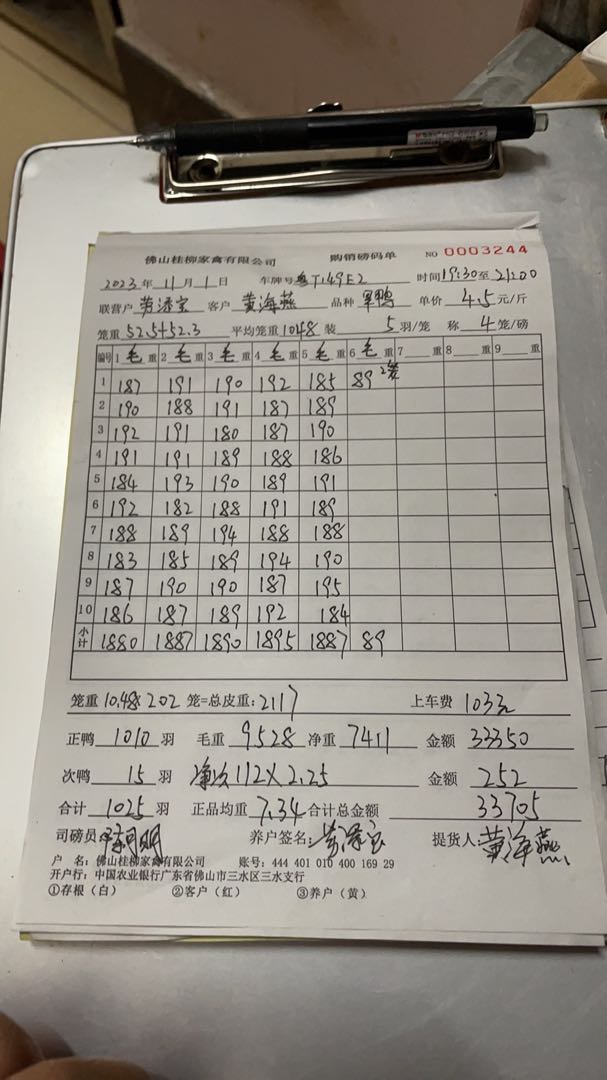 佛山桂柳家禽有限公司 购销磅码单 NO 0003244
2023年11月1日 车牌号粤T149E2 时间19:30至21:00
联营户 客户黄海燕 品种 鸭 单价4.5元/斤
笼重52.5+52.3 平均笼重1048 装5羽/笼 称4笼/磅
编号 1毛重 2毛重 3毛重 4毛重 5毛重 6毛重 7重 8重 9重
1 187 191 190 192 185 89 2笼
2 190 188 191 187 189
3 192 191 180 187 190
4 191 191 189 188 186
5 184 193 190 189 191
6 192 182 188 191 189
7 188 189 194 188 188
8 183 185 189 194 190
9 187 190 190 187 195
10 186 187 189 192 184
小计 1880 1887 1890 1895 1887 89
笼重10.48×202笼=总皮重:2117 上车费103元
正鸭1010羽 毛重9528净重7411 金额33350
次鸭15羽 净次112×2.25 金额252
合计1025羽 正品均重7.34合计总金额33705
司磅员 养户签名: 提货人:黄海燕
户 名:佛山桂柳家禽有限公司 账号:444 401 010 400 169 29
开户行:中国农业银行广东省佛山市三水区三水支行
①存根(白) ②客户(红) ③养户(黄)